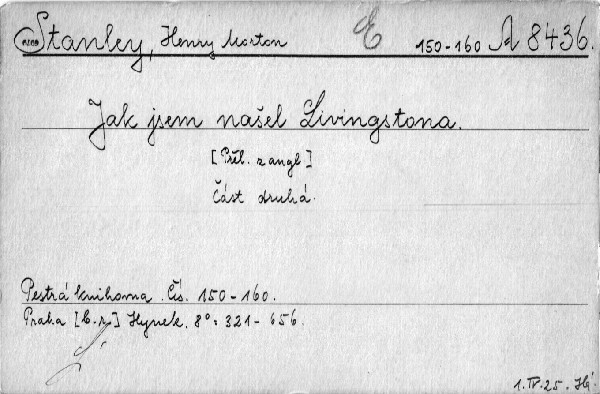 Stanley, Henry Morton E 150-160 A 8436.
Jak jsem našel Livingstona.
[Přel. z angl.]
Část druhá.
Pestrá knihovna. Čís. 150-160.
Praha [b.r.] Hynek. 8° : 321-656.
1.IV.25.